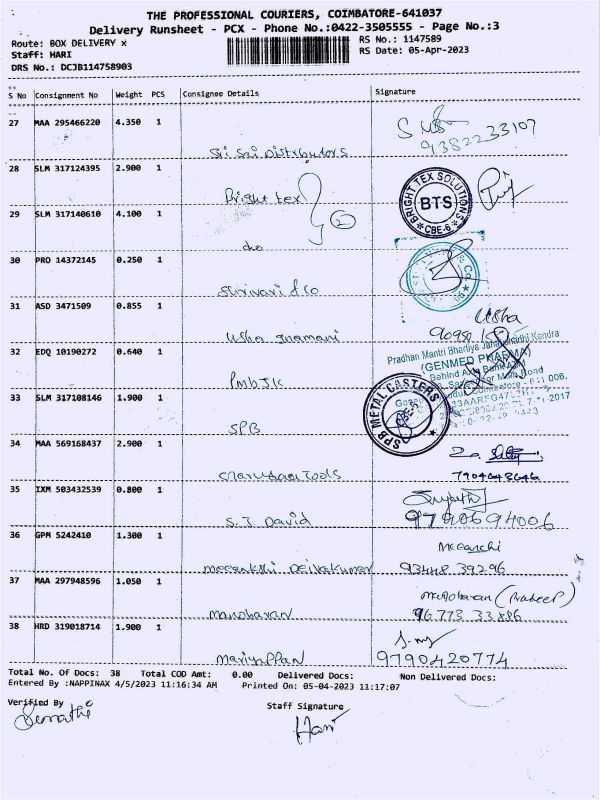 THE PROFESSIONAL COURIERS, COIMBATORE-641037
Delivery Runsheet - PCX - Phone No.:0422-3505555 - Page No.:3
Route: BOX DELIVERY x RS No.: 1147589
Staff: HARI RS Date: 05-Apr-2023
DRS No.: DCJB114758903
S No Consignment No Weight PCS Consignee Details Signature
27 MAA 295466220 4.350 1
Sri Sai Distributors 9382233107
28 SLM 317124395 2.900 1
Bright tex BRIGHT TEX SOLUTIONS BTS CBE-6
29 SLM 317140610 4.100 1
do 2
30 PRO 14372145 0.250 1
Shrivari & Co
31 ASD 3471509 0.855 1 Usha
Usha Gnamani
32 EDQ 10190272 0.640 1 Pradhan Mantri Bhartiya Kendra
(GENMED PHARMA)
PMBJK
33 SLM 317108146 1.900 1 SPB METAL CASTERS CBE-6
SPB
34 MAA 569168437 2.900 1
Tools
35 IXM 503432539 0.800 1
S.J. David 9790694006
36 GPM 5242410 1.300 1 Meenachi
Meenakshi Deivakumar 93448 39296
37 MAA 297948596 1.050 1 Manoharan (Pradeep)
Manoharan 96773 33886
38 HRD 319018714 1.900 1
Mariyappan 9790420774
Total No. Of Docs: 38 Total COD Amt: 0.00 Delivered Docs: Non Delivered Docs:
Entered By :NAPPINAX 4/5/2023 11:16:34 AM Printed On: 05-04-2023 11:17:07
Verified By Staff Signature
Hari